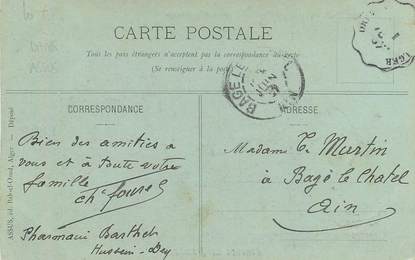 CARTE POSTALE
Tous les pays étrangers n'acceptent pas la correspondance au recto
(Se renseigner à la poste)
CORRESPONDANCE
ADRESSE
BAGE LE
JUIN
ALGER
Bien des amitiés à
vous et à toute votre
famille
Ch
Pharmacie Barthet
Hussein-Dey
Madame E. Martin
à Bagé le Chatel
Ain
ASSUS, éd. Bab-el-Oued, Alger - Déposé